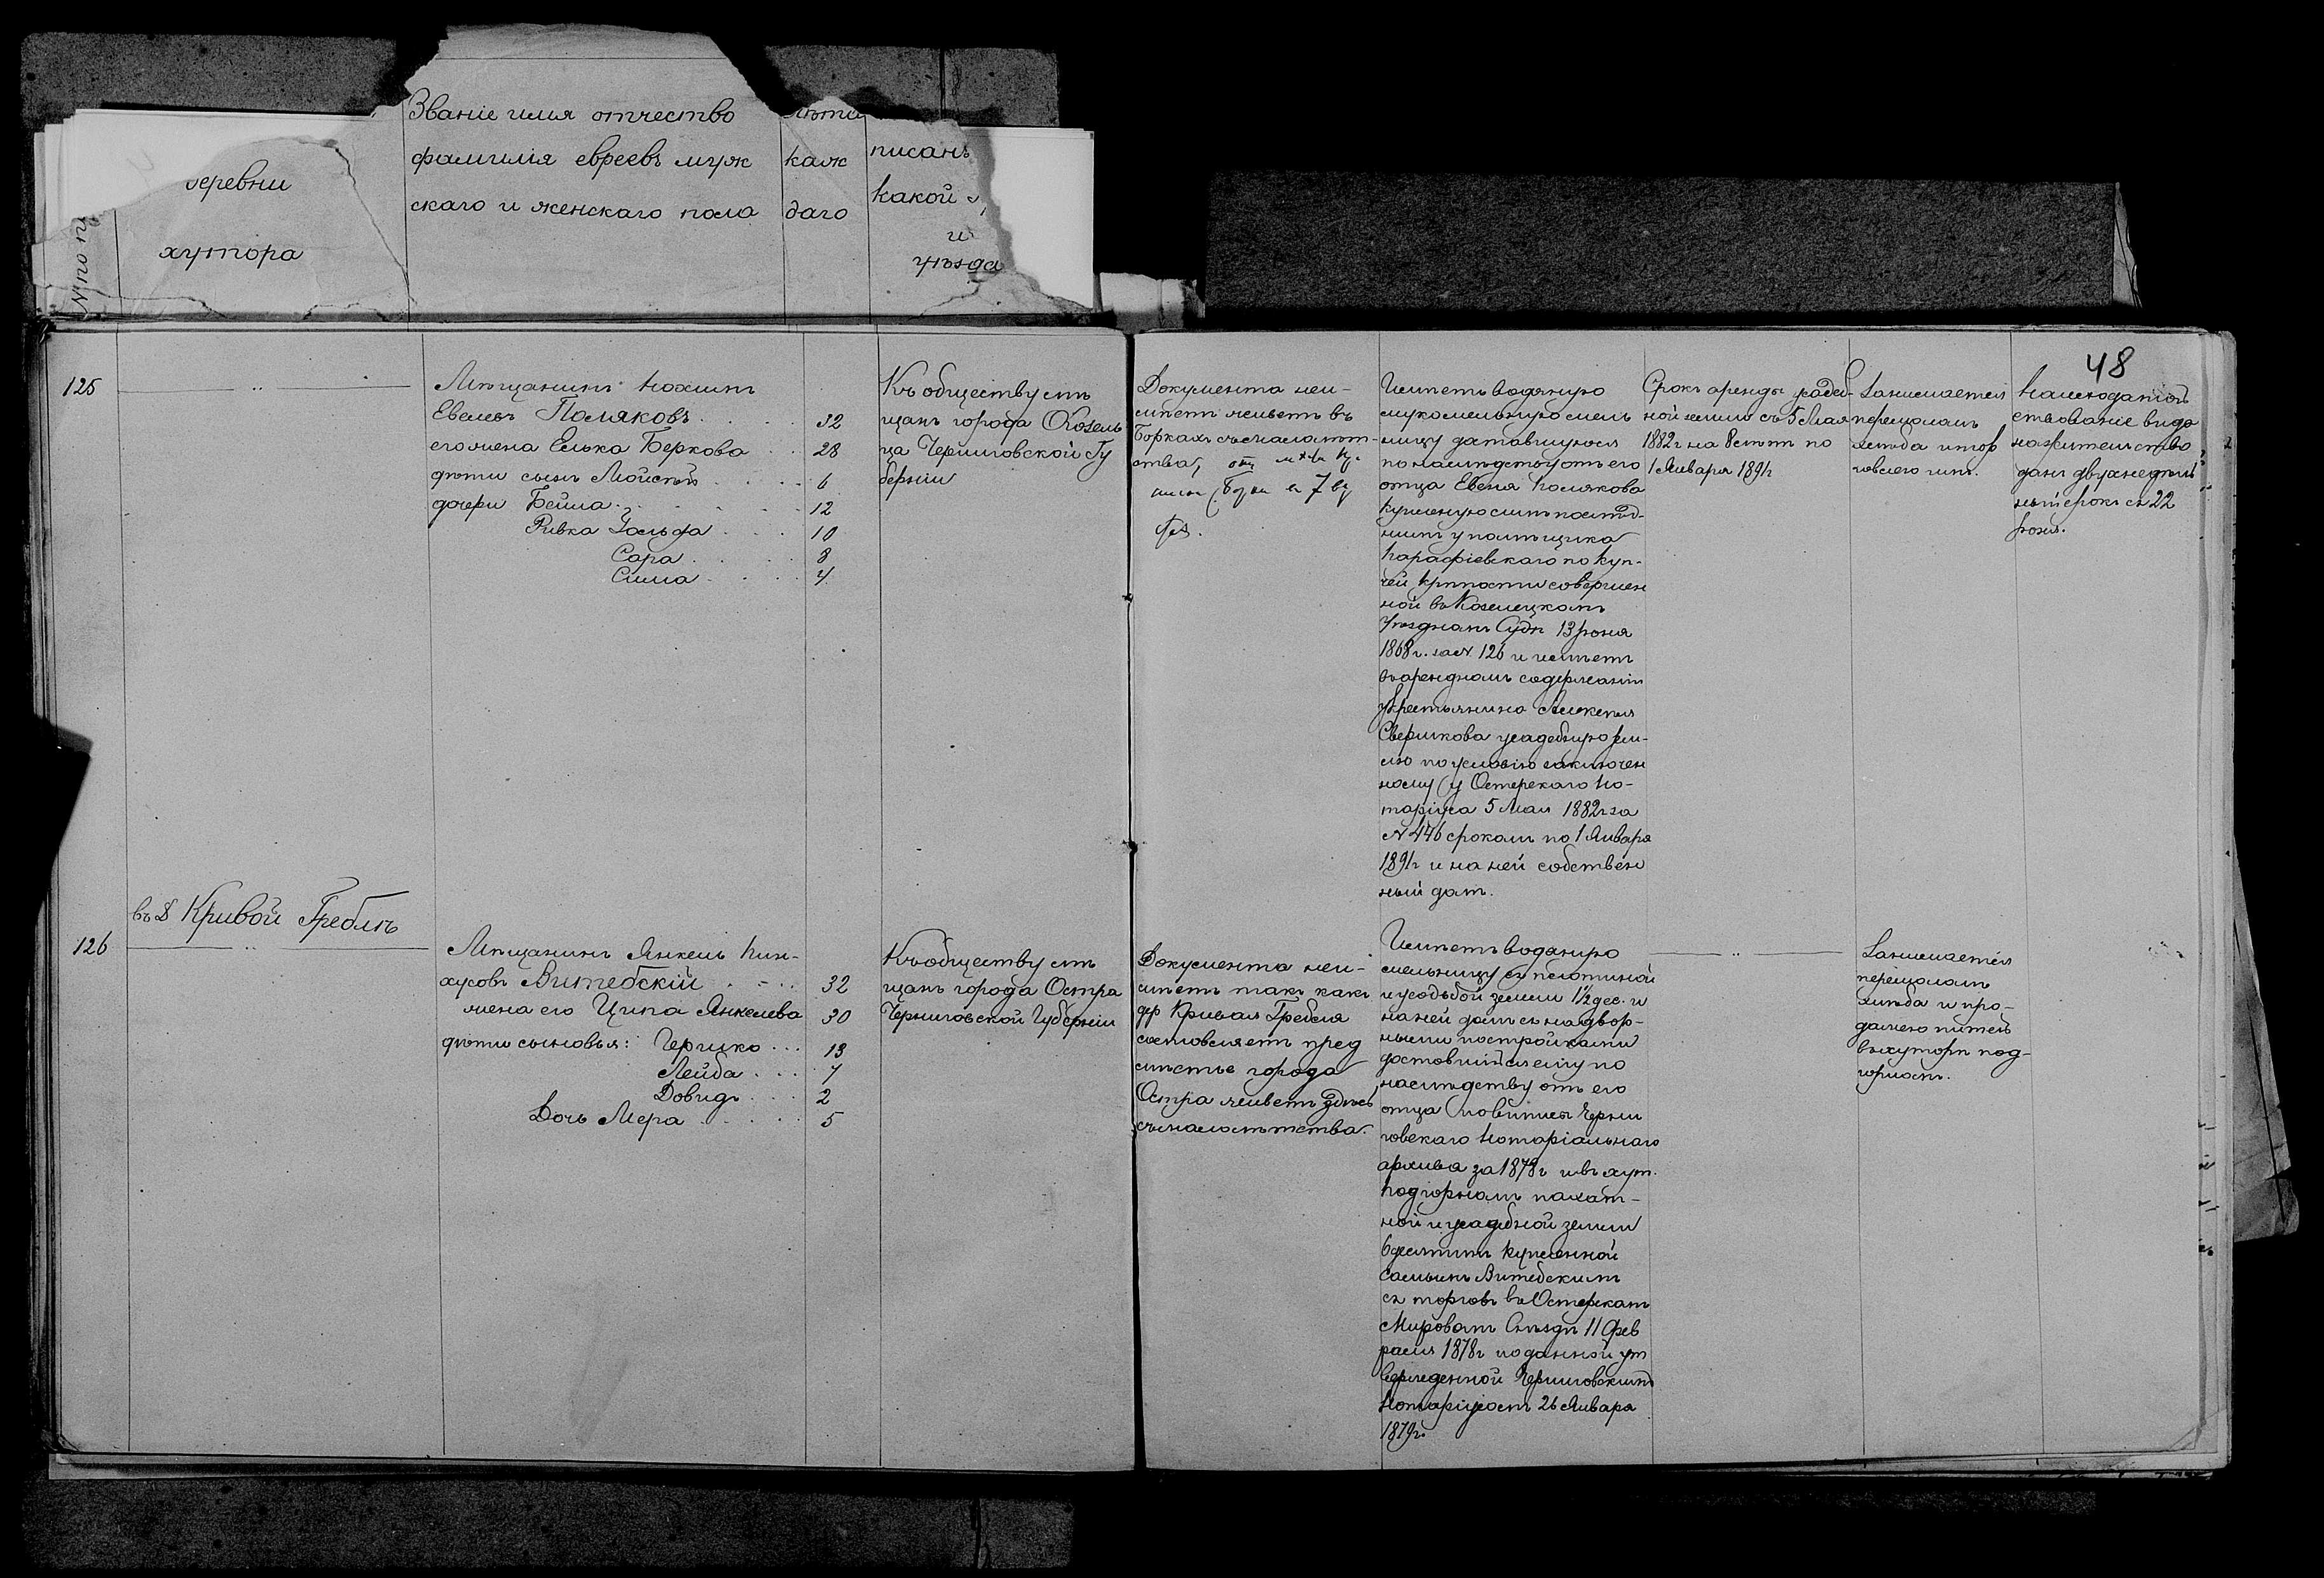 48
Званіе имя отчество
фамилія евреевъ муж
скаго и женскаго пола
каж
даго
писанъ
какой
и
уѣзда
деревни
хутора
№ по п
125
Мѣщанинъ Нохимъ
Евелевъ Поляковъ 32
его жена Елька Беркова 28
дѣти сынъ Мойсѣй 6
дочери Бейла 12
Ривка Зольда 10
Сара 8
Сима 4
Къ обществу мѣ
щанъ города Козель
ца Черниговской Гу
берніи
Документа неи-
мѣетъ живетъ въ
Боркахъ съ малолѣт-
ства,
Имѣетъ водяную
мукомельную мель
ницу доставшуюся
по наслѣдству отъ его
отца Евеля Полякова
купленную симъ послѣд-
нимъ у помѣщика
Парафіевскаго по куп-
чей крѣпости совершен
ной въ Козелецкомъ
Уѣздномъ Судѣ 13 Іюня
1868 г. за № 126 и имѣетъ
въ арендномъ содержаніи
у крестьянина Алексѣя
Сверчкова усадебную зем-
лю по условію заключен
ному у Остерскаго но-
таріуса 5 Мая 1882 г за
№ 446 срокомъ по 1 Января
1891 г и на ней собствен
ный домъ.
Срокъ аренды усадеб-
ной земли съ 5 Мая
1882 г на 8 лѣтъ по
1 Января 1891 г
Занимается
перемоломъ
хлѣба и тор
говлею имъ.
На жительство
данъ двухнедѣль
ный срокъ съ 22
Іюня.
въ Д Кривой Греблѣ
126
Мѣщанинъ Янкель Пин-
хусовъ Витебскій 32
жена его Ципа Янкелева 30
дѣти сыновья: Гершко 13
Лейба 7
Довидъ 2
Дочь Мера 5
Къ обществу мѣ
щанъ города Остра
Черниговской Губерніи
Документа неи-
мѣетъ такъ какъ
др Кривая Гребля
составляетъ пред
мѣстье города
Остра живетъ здѣсь
съ малолѣтства.
Имѣетъ водяную
мельницу съ плотиной
и усадьбой земли 1½ дес. и
на ней домъ съ надвор-
ными постройками
доставшійся ему по
наслѣдству отъ его
отца по выписи Черни
говскаго Нотаріальнаго
архива за 1878 г и въ хут.
Подгорномъ пахат-
ной и усадебной земли
6 десятинъ купленной
самимъ Витебскимъ
съ торговъ въ Остерскомъ
Мировомъ Съѣздѣ 11 Фев
раля 1878 г по данной ут
вержденной Черниговскимъ
Нотаріусомъ 26 Января
1879 г.
Занимается
перемоломъ
хлѣба и про-
дажею питей
въ хуторѣ Под-
горномъ.